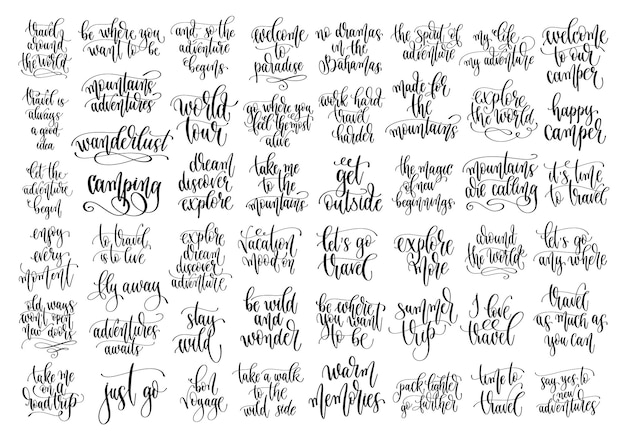 travel
around
the world
be where you
want to be
and, so the
adventure
begins
welcome
to
paradise
no dramas
in the
Bahamas
the spirit of
adventure
my life
my adventure
welcome
to our
camper
travel is
always
a good
idea
mountains
adventures
wanderlust
world
tour
go where you
feel the most
alive
work hard
travel
harder
made for
the
mountains
explore
the world
happy
camper
let the
adventure
begin
camping
dream
discover
explore
take me
to the
mountains
get
outside
the magic
of new
beginnings
mountains
are calling
it's time
to travel
enjoy
every
moment
to travel
is to live
fly away
explore
dream
discover
adventure
vacation
mood on
let's go
travel
explore
more
around
the world
let's go
any where
old ways
won't open
new doors
adventures
awaits
stay
wild
be wild
and
wonder
be where
you want
to be
summer
trip
I love
travel
travel
as much as
you can
take me
on a
road trip
just go
bon
voyage
take a walk
to the
wild side
warm
memories
pack lighter
go further
time to
travel
say yes to
new
adventures